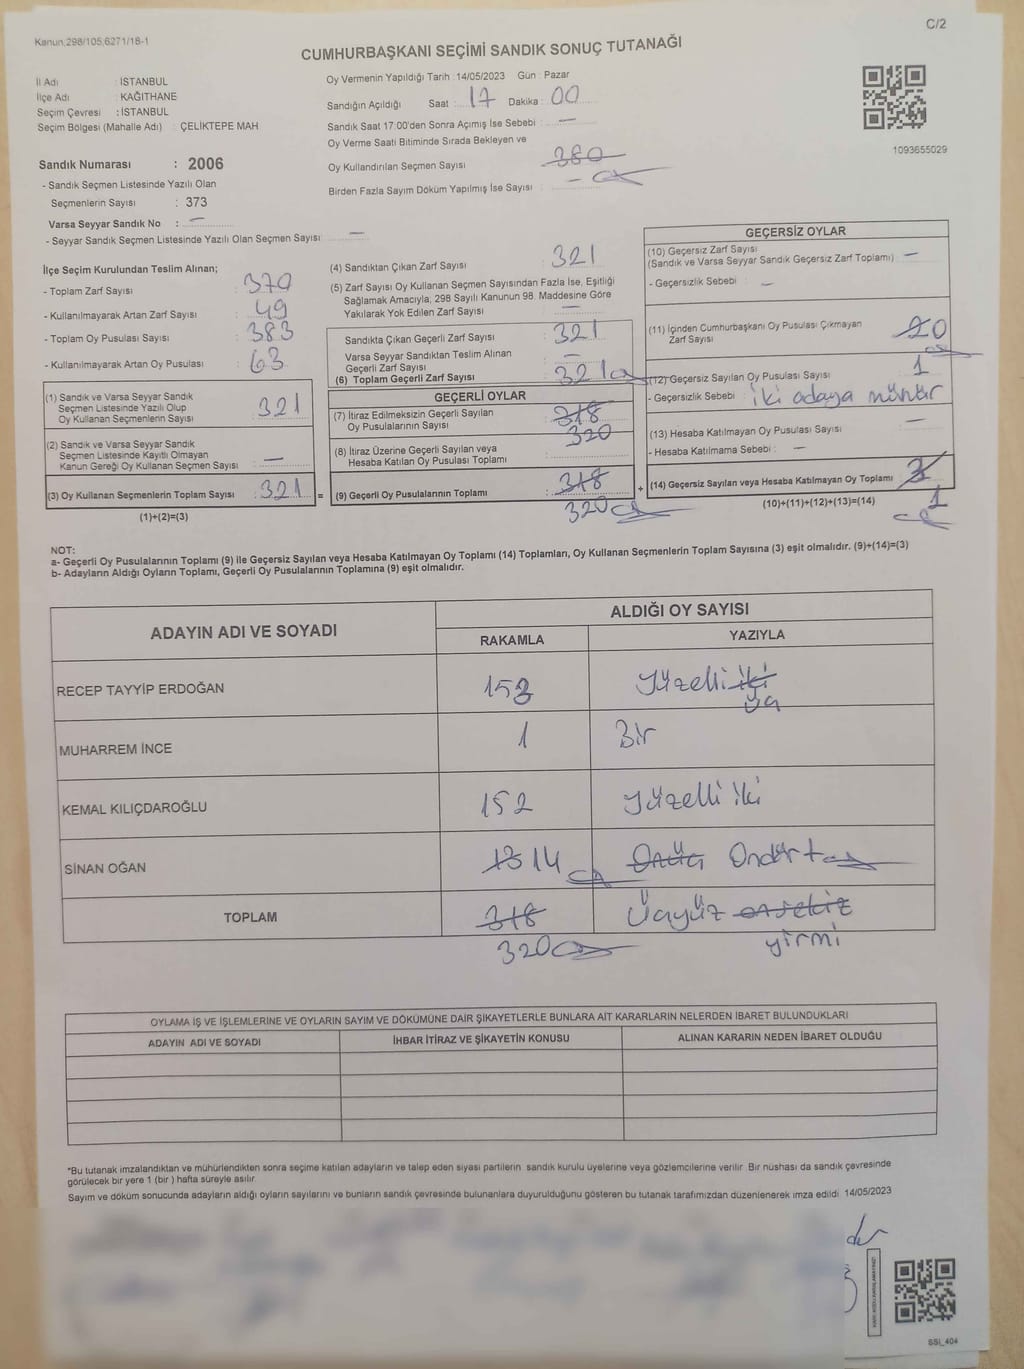 C/2
Kanun,298/105,6271/18-1
CUMHURBAŞKANI SEÇİMİ SANDIK SONUÇ TUTANAĞI
İl Adı : İSTANBUL
İlçe Adı : KAĞITHANE
Seçim Çevresi : İSTANBUL
Seçim Bölgesi (Mahalle Adı) : ÇELİKTEPE MAH
Oy Vermenin Yapıldığı Tarih : 14/05/2023 Gün : Pazar
Sandığın Açıldığı Saat : 17 Dakika : 00
Sandık Saat 17:00'den Sonra Açımış İse Sebebi : —
Oy Verme Saati Bitiminde Sırada Bekleyen ve
Oy Kullandırılan Seçmen Sayısı 380
Birden Fazla Sayım Döküm Yapılmış İse Sayısı : —
1093655029
Sandık Numarası : 2006
- Sandık Seçmen Listesinde Yazılı Olan
Seçmenlerin Sayısı : 373
Varsa Seyyar Sandık No : —
- Seyyar Sandık Seçmen Listesinde Yazılı Olan Seçmen Sayısı: —
İlçe Seçim Kurulundan Teslim Alınan;
- Toplam Zarf Sayısı : 370
- Kullanılmayarak Artan Zarf Sayısı : 49
- Toplam Oy Pusulası Sayısı : 383
- Kullanılmayarak Artan Oy Pusulası : 63
(1) Sandık ve Varsa Seyyar Sandık
Seçmen Listesinde Yazılı Olup
Oy Kullanan Seçmenlerin Sayısı : 321
(2) Sandık ve Varsa Seyyar Sandık
Seçmen Listesinde Kayıtlı Olmayan
Kanun Gereği Oy Kullanan Seçmen Sayısı : —
(3) Oy Kullanan Seçmenlerin Toplam Sayısı : 321 =
(1)+(2)=(3)
(4) Sandıktan Çıkan Zarf Sayısı : 321
(5) Zarf Sayısı Oy Kullanan Seçmen Sayısından Fazla İse, Eşitliği
Sağlamak Amacıyla, 298 Sayılı Kanunun 98. Maddesine Göre
Yakılarak Yok Edilen Zarf Sayısı : —
Sandıkta Çıkan Geçerli Zarf Sayısı : 321
Varsa Seyyar Sandıktan Teslim Alınan
Geçerli Zarf Sayısı : —
(6) Toplam Geçerli Zarf Sayısı : 321
GEÇERLİ OYLAR
(7) İtiraz Edilmeksizin Geçerli Sayılan 318
Oy Pusulalarının Sayısı : 320
(8) İtiraz Üzerine Geçerli Sayılan veya
Hesaba Katılan Oy Pusulası Toplamı :
(9) Geçerli Oy Pusulalarının Toplamı : 318 +
320
GEÇERSİZ OYLAR
(10) Geçersiz Zarf Sayısı
(Sandık ve Varsa Seyyar Sandık Geçersiz Zarf Toplamı) : —
- Geçersizlik Sebebi : —
(11) İçinden Cumhurbaşkanı Oy Pusulası Çıkmayan
Zarf Sayısı : 20
(12) Geçersiz Sayılan Oy Pusulası Sayısı : 1
- Geçersizlik Sebebi : iki adaya mühür
(13) Hesaba Katılmayan Oy Pusulası Sayısı : —
- Hesaba Katılmama Sebebi : —
(14) Geçersiz Sayılan veya Hesaba Katılmayan Oy Toplamı : 3
1
(10)+(11)+(12)+(13)=(14)
NOT:
a- Geçerli Oy Pusulalarının Toplamı (9) ile Geçersiz Sayılan veya Hesaba Katılmayan Oy Toplamı (14) Toplamları, Oy Kullanan Seçmenlerin Toplam Sayısına (3) eşit olmalıdır. (9)+(14)=(3)
b- Adayların Aldığı Oyların Toplamı, Geçerli Oy Pusulalarının Toplamına (9) eşit olmalıdır.
ADAYIN ADI VE SOYADI
ALDIĞI OY SAYISI
RAKAMLA YAZIYLA
RECEP TAYYİP ERDOĞAN 153 Yüzelli iki
üç
MUHARREM İNCE 1 Bir
KEMAL KILIÇDAROĞLU 152 Yüzelli iki
SİNAN OĞAN 13 14 Onüç Ondört
TOPLAM 318 Üçyüz onsekiz
320 yirmi
OYLAMA İŞ VE İŞLEMLERİNE VE OYLARIN SAYIM VE DÖKÜMÜNE DAİR ŞİKAYETLERLE BUNLARA AİT KARARLARIN NELERDEN İBARET BULUNDUKLARI
ADAYIN ADI VE SOYADI İHBAR İTİRAZ VE ŞİKAYETİN KONUSU ALINAN KARARIN NEDEN İBARET OLDUĞU
*Bu tutanak imzalandıktan ve mühürlendikten sonra seçime katılan adayların ve talep eden siyasi partilerin sandık kurulu üyelerine veya gözlemcilerine verilir. Bir nüshası da sandık çevresinde
görülecek bir yere 1 (bir) hafta süreyle asılır.
Sayım ve döküm sonucunda adayların aldığı oyların sayılarını ve bunların sandık çevresinde bulunanlara duyurulduğunu gösteren bu tutanak tarafımızdan düzenlenerek imza edildi. 14/05/2023
SSI_404